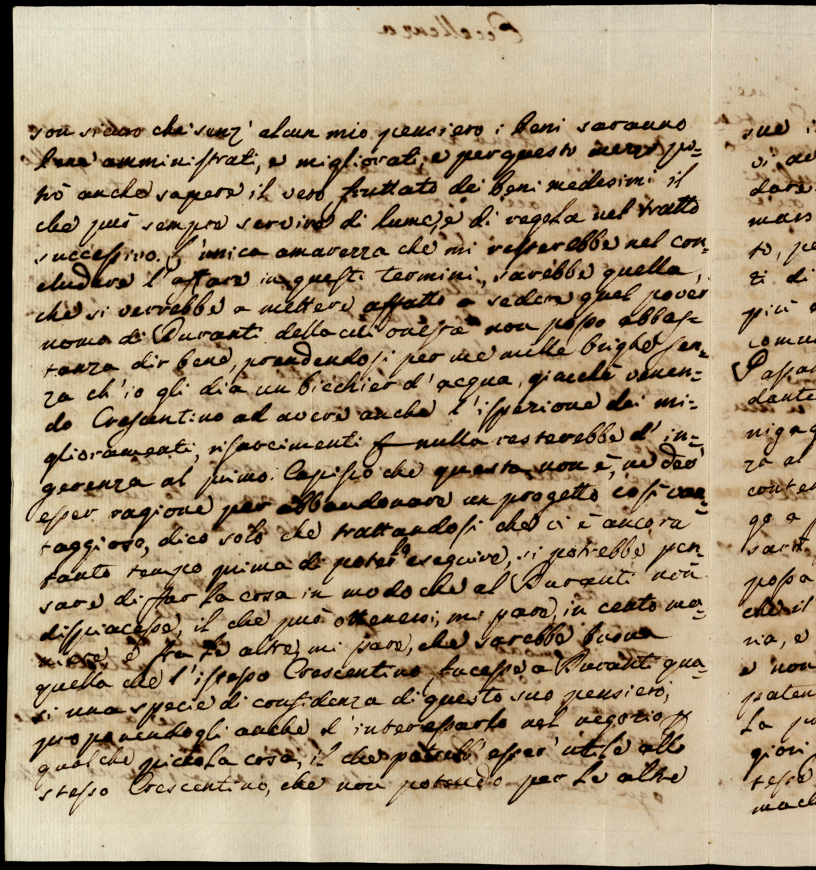 son sicuro che senz' alcun mio pensiero i beni saranno
bene amministrati, e migliorati, e per questo mezzo po-
trò anche sapere il vero fruttato dei beni medesimi il
che può sempre servire di lume, e di regola nel tratto
successivo. L'unica amarezza che mi resterebbe nel con
cludere l'affare in questi termini, sarebbe quella,
che si verrebbe a mettere affatto a sedere quel pover
uomo di Duranti della cui onestà non posso abbas-
tanza dir bene, prendendosi per me mille brighe sen-
za ch'io gli dia un bicchier d'acqua, giacchè venen-
do Crescentino ad avere anche l'ispezione dei mi-
glioramenti, risarcimenti nulla resterebbe d' in-
gerenza al primo. Capisco che questa non è, nè deve
esser ragione per abbandonare un progetto così van-
taggioso, dico solo che trattandosi che ci è ancora
tanto tempo prima di poter eseguire, si potrebbe pen-
sare di far la cosa in modo che al Duranti non
dispiacesse, il che può ottenersi, mi pare, in cento ma-
niere, e fra le altre, mi pare, che sarebbe buona
quella che l'istesso Crescentino facesse a Duranti qua-
si una specie di confidenza di questo suo pensiero,
proponendogli anche d'interessarlo nel negozio p
qualche piccola cosa, il che potrebb' esser' utile allo
stesso Crescentino, che non potendo per le altre
sue
dare
più
comu
dante
za al
conten
possa
che il
ria, e
e non
paten
giori